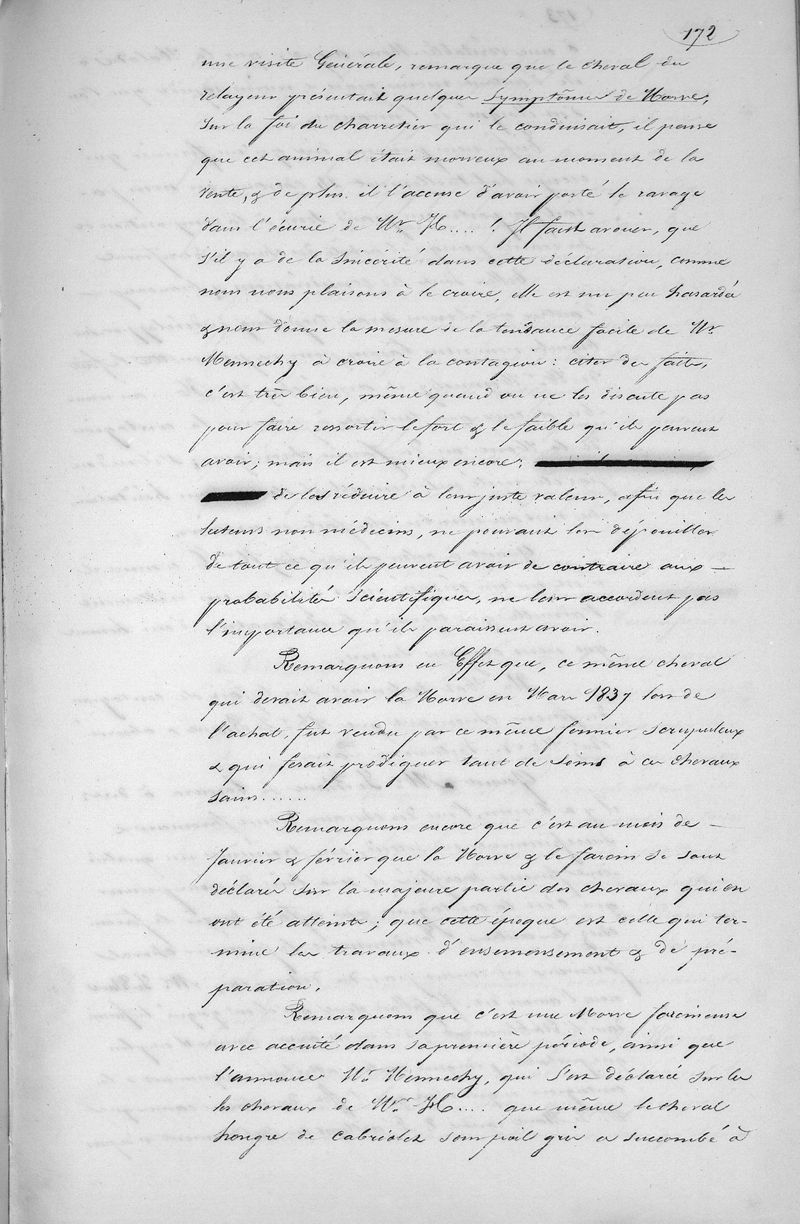 172
une visite Générale, remarque que le cheval du
relayeur présentait quelques symptômes de Morve,
sur la foi du charretier qui le conduisait, il pense
que cet animal était morveux au moment de la
vente, & de plus il l'accuse d'avoir porté le ravage
dans l'écurie de Mr. H....! Il faut avouer, que
s'il y a de la sincérité dans cette déclaration, comme
nous nous plaisons à le croire, elle est un peu hasardée
& nous donne la mesure de la tendance facile de Mr
Mennechy à croire à la contagion: citer des faits,
c'est très bien, même quand on ne les discute pas
pour faire ressortir le fort & le faible qu'ils peuvent
avoir; mais il est mieux encore,
de les réduire à leur juste valeur, afin que les
lecteurs non médecins, ne pouvant les dépouiller
de tout ce qu'ils peuvent avoir de contraire aux —
probabilités scientifiques, ne leur accordent pas
l'importance qu'ils paraissent avoir.
Remarquons en Effet que, ce même cheval
qui devait avoir la Morve en Mars 1837 lors de
l'achat, fut vendu par ce même fermier scrupuleux
& qui ferait prodiguer tant de soins à ces chevaux
sains......
Remarquons encore que c'est au mois de —
Janvier & février que la Morve & le farcin se sont
déclarés sur la majeure partie des chevaux qui en
ont été atteints; que cette époque est celle qui ter-
mine les travaux d'ensemensement & de pré-
paration.
Remarquons que c'est une Morve farcineuse
avec accuité dans sa première période, ainsi que
l'annonce Mr. Mennechy, qui s'est déclarée sur les
les chevaux de Mr. H.... que même le cheval
hongre de cabriolet sous poil gris a succombé à